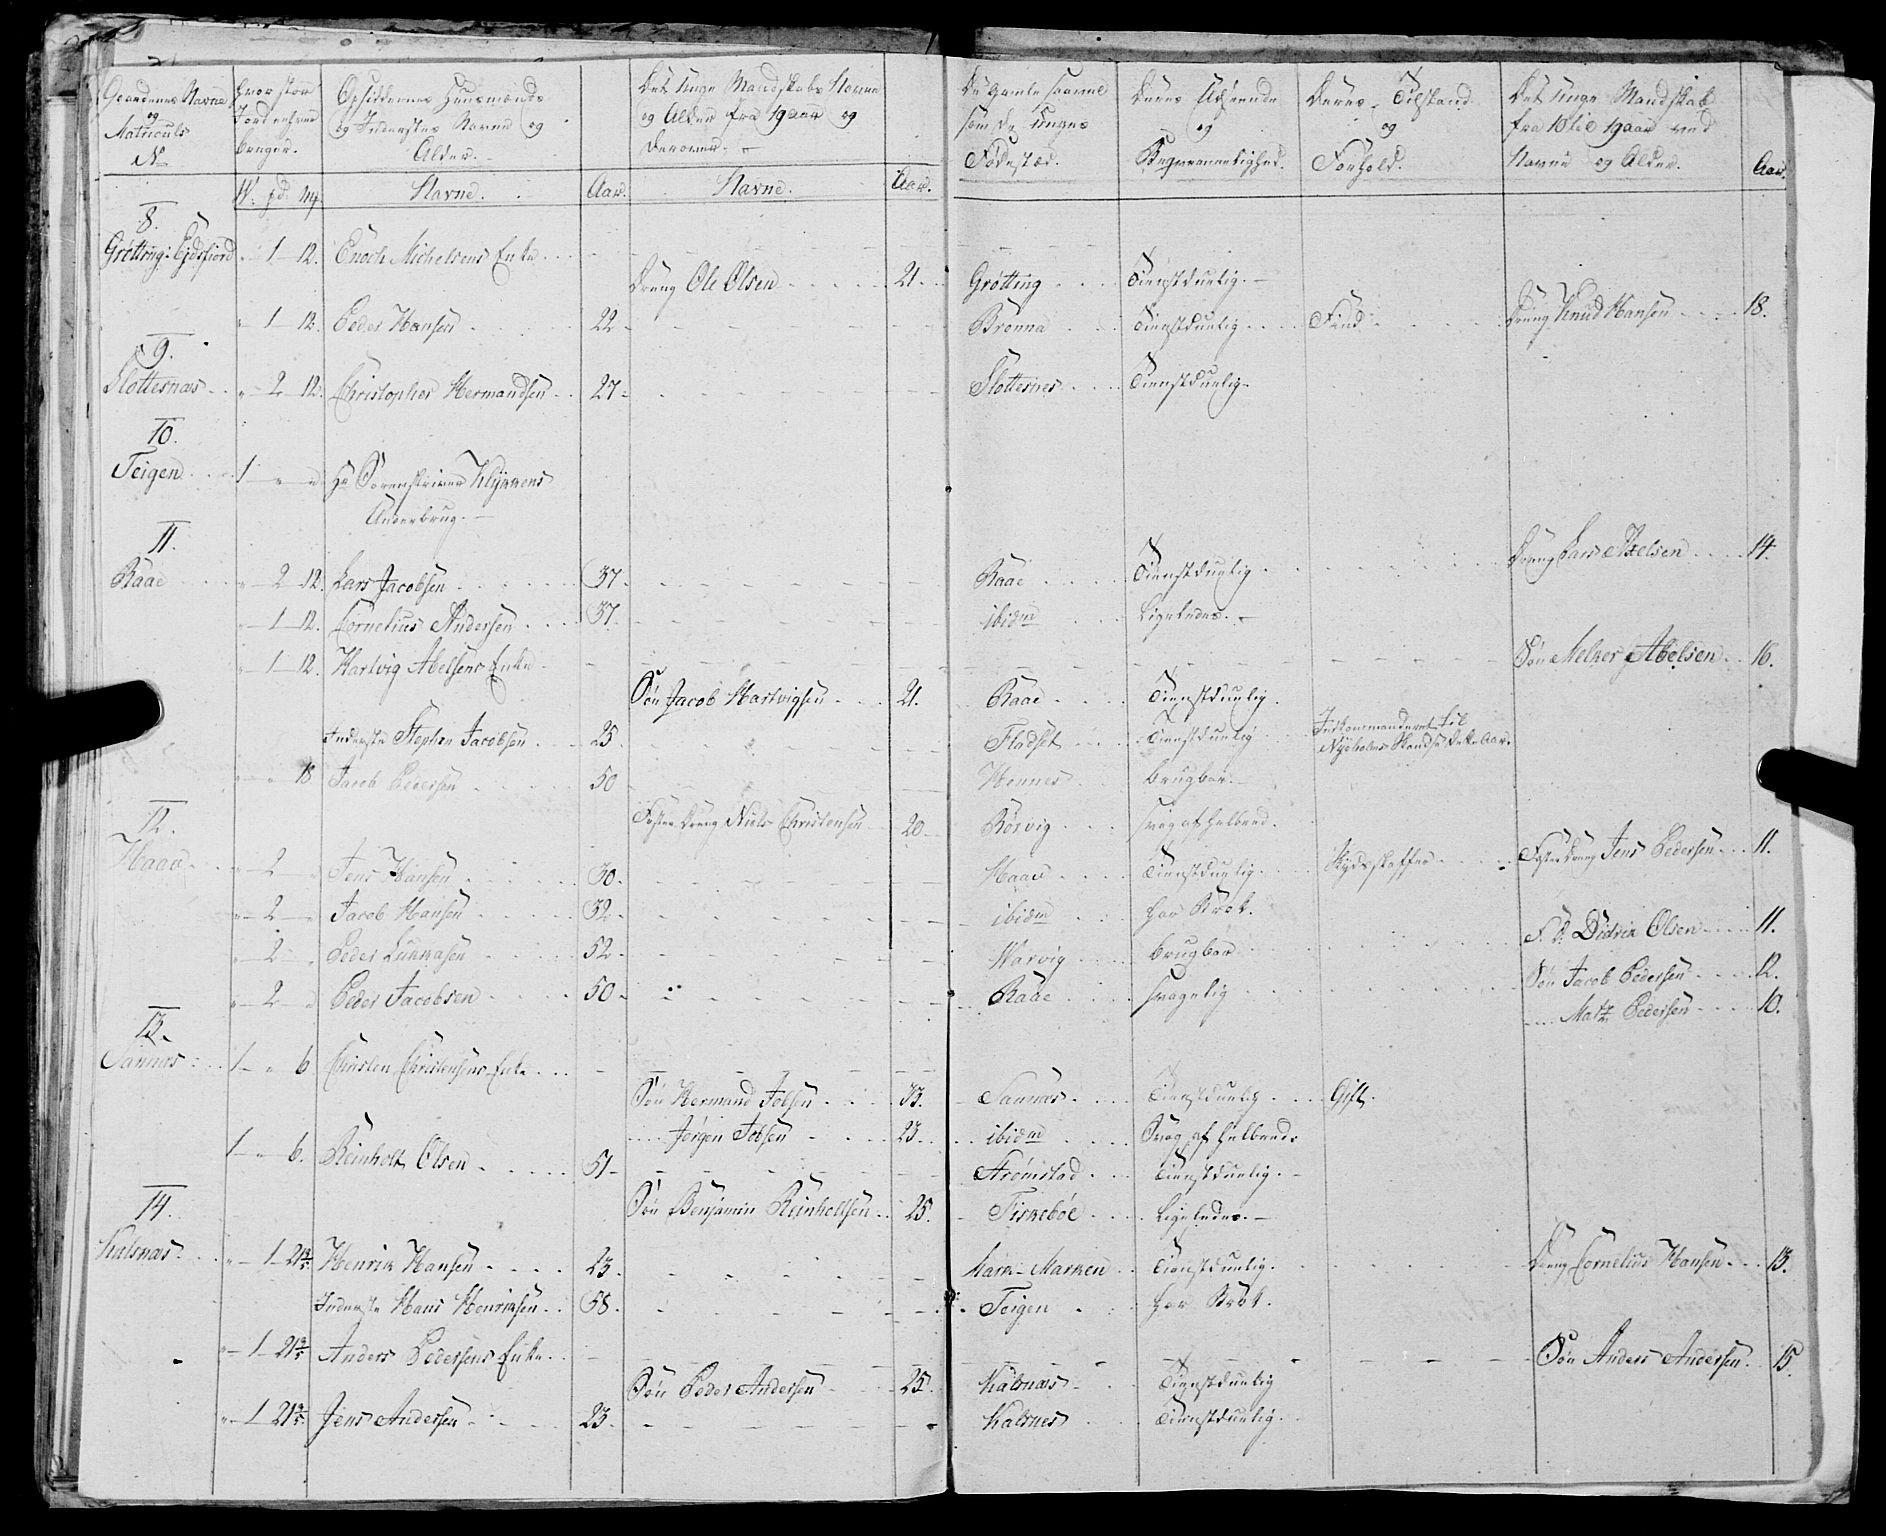 Gaardenes Navne og Matriculs No
hvor stor Jord enhver bruger.
Opsiddernes Huusmænds og Inderstes Navne og Alder.
Det Unge Mandskabs Navne og Alder fra 19 aar og derover.
De Gamle saavel som de Unges Fødested.
Deres Udseende og Beqvæmmelighed.
Deres Tilstand og Forhold.
Det Unge Mandskab fra 10 til 19 aar ved Navne og Alder.
Aar.
W. pd. mk. Navne. Aar. Navne. Aar.
8.
Grøtting: Ejdsfiord " 1 12. Enoch Michelsens Enke
Dreng Ole Olsen 21. Grøtting Tienstduelig.
" 1 12. Peder Hansen 22 Brønna Tienstduelig Find Dreng Knud Hansen 18.
9.
Slottesnæs " 2 12. Christopher Hermandsen 27 Slottesnes Tienstduelig
10.
Teigen 1 " " Hr Sorenskriver Klykkens
Underbrug.
11.
Raae " 2 12. Lars Jacobsen 37. Raae Tienstduelig Dreng Lars Axelsen 14.
" 1 12. Cornelius Andersen 37. ibidm Ligeledes.
" 1 12. Hartvig Abelsens Enke Søn Melker Abelsen 16.
Søn Jacob Hartvigsen 21. Raae Tienstduelig.
Inderste Stephen Jacobsen 25. Flodset Tienstduelig Indkommanderet til
Nyeholms Skandse dette Aar.
" " 18 Jacob Pedersen 50 Hennes brugbar.
12.
Foster Dreng Niels Christensen 20 Børvig svag af helbred.
Haae " 2 " Jens Hansen 30. Haae Tienstduelig Skydsskaffer Foster dreng Jens Pedersen 11.
" 2 " Jacob Hansen 32. ibidm har Brok.
F. d: Didrik Olsen 11.
" 2 " Peder Lukkasen 52. Warvig brugbar
Søn Jacob Pedersen 12.
" 2 " Peder Jacobsen 50 Raae svagelig
Matz Pedersen 10.
13.
Sannæs 1 " 6 Christen Christensens Enke
Søn Hermand Jobsen 33. Sannæs Tienstduelig Gift.
Jørgen Jobsen 23. ibidm Svag af helbred.
1 " 6. Reinholt Olsen 51 Strømstad Tienstduelig.
14.
Søn Benjamin Reinholtsen 25. Fiskebøe Ligeledes.
Kalsnæs " 1 21 3/5 Henrik Hansen 23. Mark-Marken Tienstduelig. Dreng Cornelius Hansen 13.
Inderste Hans Henriksen 58. Teigen har Brok.
" 1 21 3/5 Anders Pedersens Enke Søn Anders Andersen 15.
Søn Peder Andersen 25. Kalsnæs Tienstduelig
" 1 21 3/5 Jens Andersen 23. Kalsnes Tienstduelig.